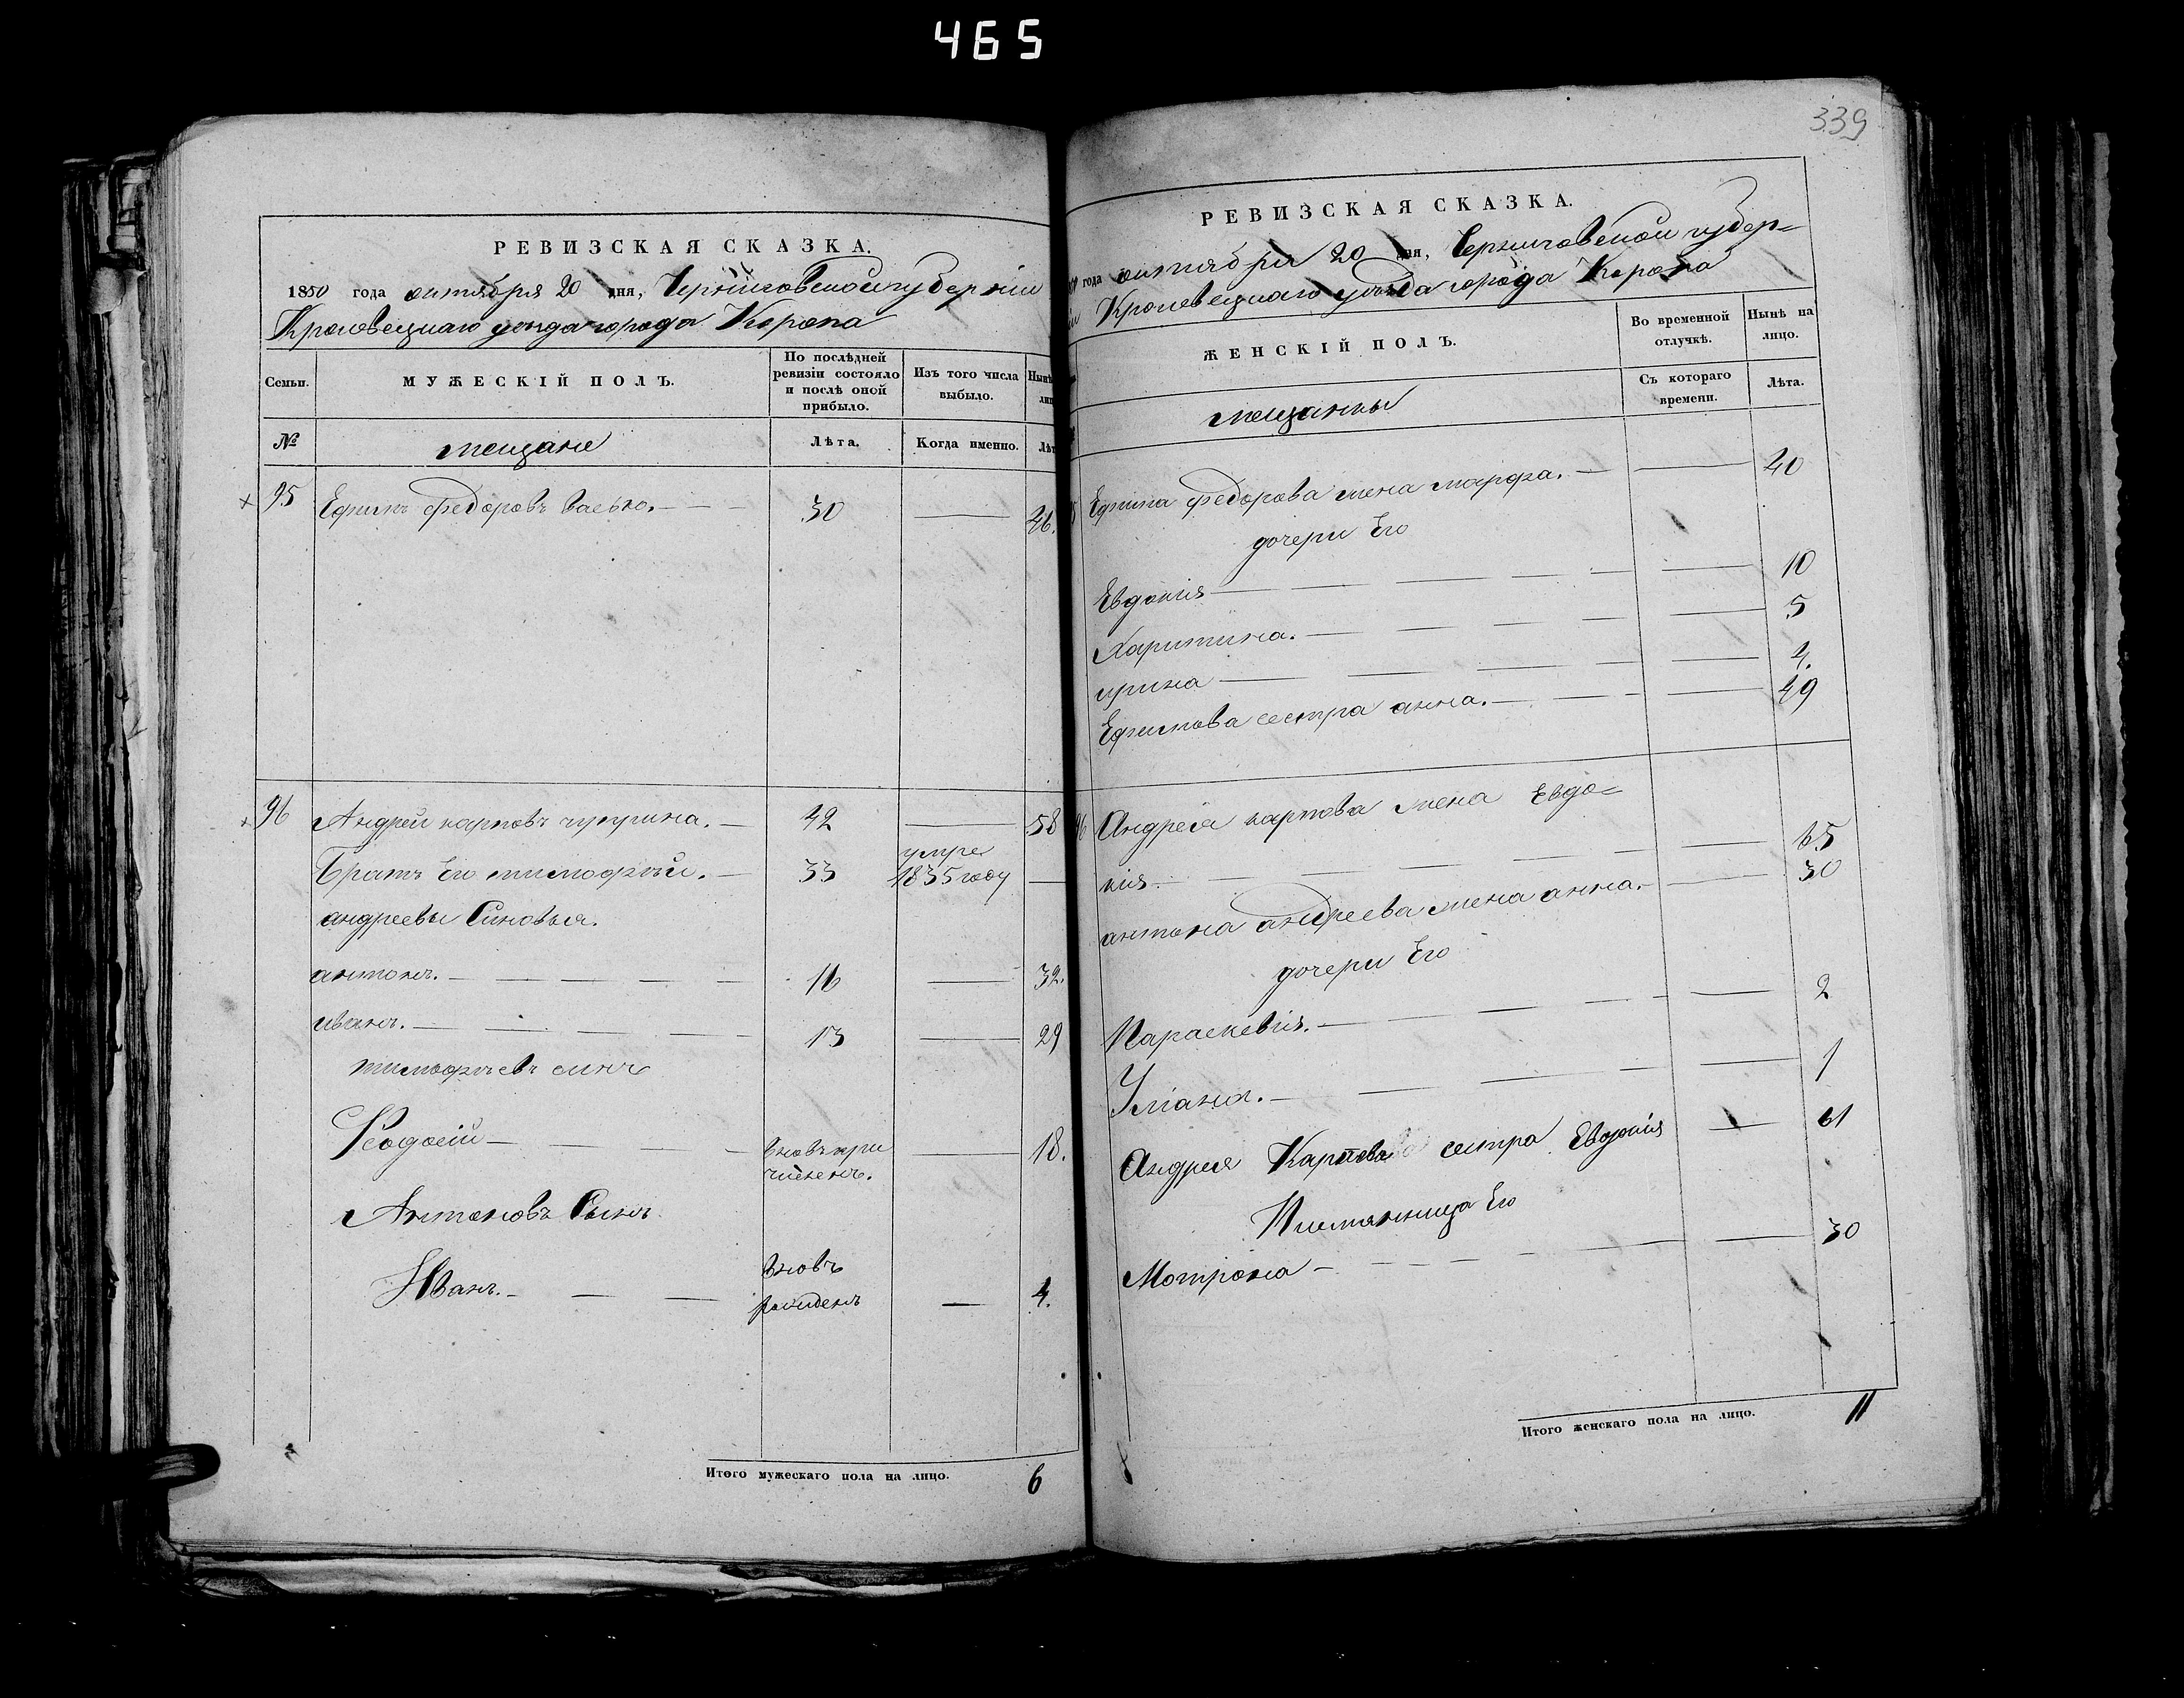 465
339
РЕВИЗСКАЯ СКАЗКА.
1850 года октября 20 дня, Черниговской губерніи
Кролевецкаго уѣзда города Коропа
Семьи.
МУЖЕСКІЙ ПОЛЪ.
По послѣдней ревизіи состояло и послѣ оной прибыло.
Изъ того числа выбыло.
Нынѣ
№
мещане
Лѣта.
Когда именно.
Лѣт
95 Ефимъ федоровъ васько. 30 — 46.
96 Андрей карповъ чугрина. — 42 — 58
Братъ Его тимофѣй. — 33 умре 1835 году —
андреевы Синовья.
антонъ. — 16 — 32.
иванъ. — 13 — 29
тимофѣевъ синъ
Феодосій — вновь причисленъ. — 18.
Антоновъ Сынъ
Иванъ. — вновъ рожденъ — 4.
Итого мужескаго пола на лицо. 6
РЕВИЗСКАЯ СКАЗКА.
года октября 20 дня, Черниговской губер=
Кролевецкаго уѣзда города Коропа
ЖЕНСКІЙ ПОЛЪ.
Во временной отлучкѣ.
Нынѣ на лицо.
мещанки
Съ котораго времени.
Лѣта.
Ефима федорова жена марфа. — — 40
дочери Его
Евдокия — — 10
Харитина. — — 5
ирина — — 4.
Ефимова сестра анна. — — 49
96 Андрея карпова жена Евдо=
кия — — 65
антона андреева жена анна. — 30
дочери Его
Параскевия. — — 2
Улiана. — — 1
Андрея Карпова сестра Евдокия — 61
Племянница Его
Мотрона — — 30
Итого женскаго пола на лицо. 11